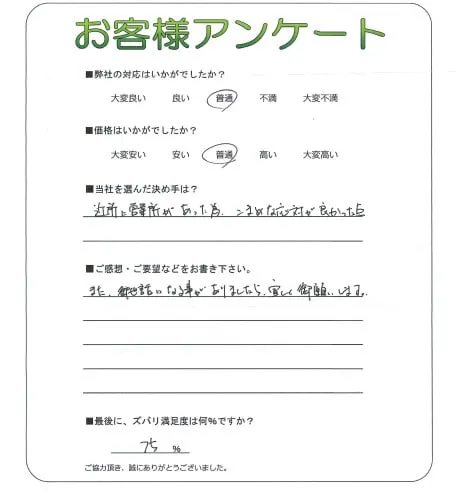 お客様アンケート
■弊社の対応はいかがでしたか?
大変良い 良い 普通 不満 大変不満
■価格はいかがでしたか?
大変安い 安い 普通 高い 大変高い
■当社を選んだ決め手は?
近所に営業所があった為、こまめな応対が良かった点
■ご感想・ご要望などをお書き下さい。
また、御世話になる事がありましたら、宜しく御願いします。
■最後に、ズバリ満足度は何%ですか?
75 %
ご協力頂き、誠にありがとうございました。